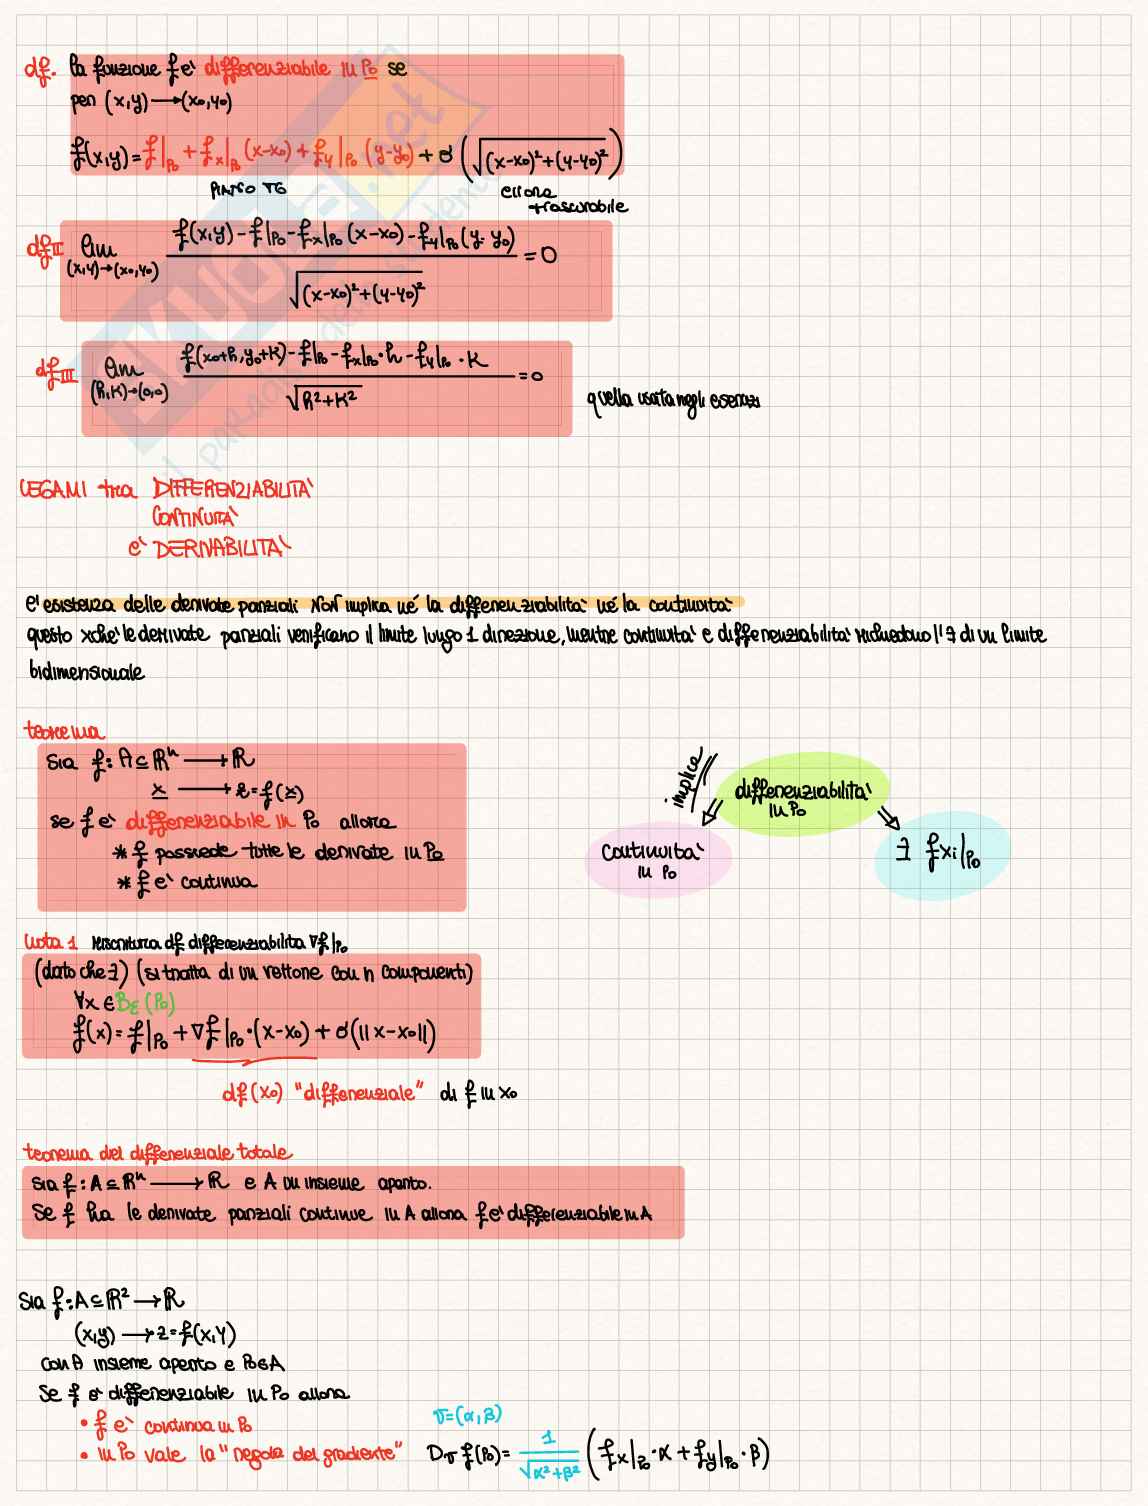 df. la funzione f è differenziabile in P₀ se
per (x,y) → (x₀,y₀)
f(x,y) = f|P₀ + fx|P₀ (x-x₀) + fy|P₀ (y-y₀) + o(√((x-x₀)²+(y-y₀)²))
PIANO TG
errore trascurabile
df II lim (x,y)→(x₀,y₀) (f(x,y) - f|P₀ - fx|P₀ (x-x₀) - fy|P₀ (y-y₀)) / √((x-x₀)²+(y-y₀)²) = 0
df III lim (h,k)→(0,0) (f(x₀+h, y₀+k) - f|P₀ - fx|P₀·h - fy|P₀·k) / √(h²+k²) = 0
quella usata negli esercizi
LEGAMI tra DIFFERENZIABILITÀ
CONTINUITÀ
e DERIVABILITÀ
l'esistenza delle derivate parziali NON implica né la differenziabilità né la continuità
questo xché le derivate parziali verificano il limite lungo 1 direzione, mentre continuità e differenziabilità richiedono l'∃ di un limite
bidimensionale
teorema
Sia f: A ⊆ ℝⁿ → ℝ
x → z = f(x)
se f è differenziabile in P₀ allora
* f possiede tutte le derivate in P₀
* f è continua
implica
differenziabilità in P₀
continuità in P₀
∃ fxi|P₀
nota 1 riscrittura df differenziabilità ∇f|P₀
(dato che ∃) (si tratta di un vettore con n componenti)
∀x ∈ Bε(P₀)
f(x) = f|P₀ + ∇f|P₀ · (x-x₀) + o(||x-x₀||)
df(x₀) "differenziale" di f in x₀
teorema del differenziale totale
sia f: A ⊆ ℝⁿ → ℝ e A un insieme aperto.
Se f ha le derivate parziali continue in A allora f è differenziabile in A
Sia f: A ⊆ ℝ² → ℝ
(x,y) → z = f(x,y)
con A insieme aperto e P₀∈A
Se f è differenziabile in P₀ allora
• f è continua in P₀
v = (α, β)
• in P₀ vale la "regola del gradiente" Dv f(P₀) = 1/√(α²+β²) (fx|P₀ · α + fy|P₀ · β)